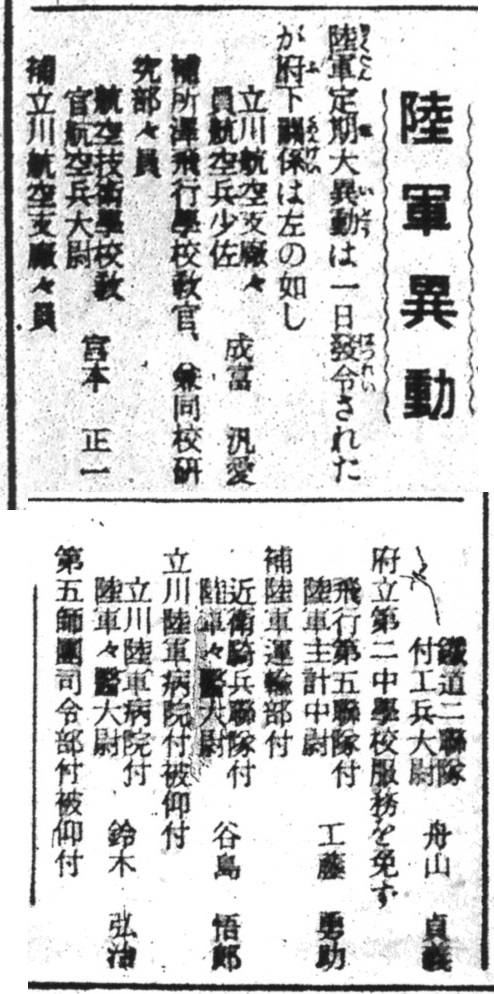 陸軍異動
陸軍定期大異動は一日發令された
が府下關係は左の如し
立川航空支廠々
員航空兵少佐　成富　汎愛
補所澤飛行學校教官、兼同校研
究部々員
航空技術學校教
官航空兵大尉　宮本　正一
補立川航空支廠々員
鐵道二聯隊
付工兵大尉　舟山　貞義
府立第二中學校服務を免ず
飛行第五聯隊付
陸軍主計中尉　工藤　勇助
補陸軍運輸部付
近衛騎兵聯隊付
陸軍々醫大尉　谷島　悟郎
立川陸軍病院付被仰付
立川陸軍病院付
陸軍々醫大尉　鈴木　弘
第五師團司令部付被仰付